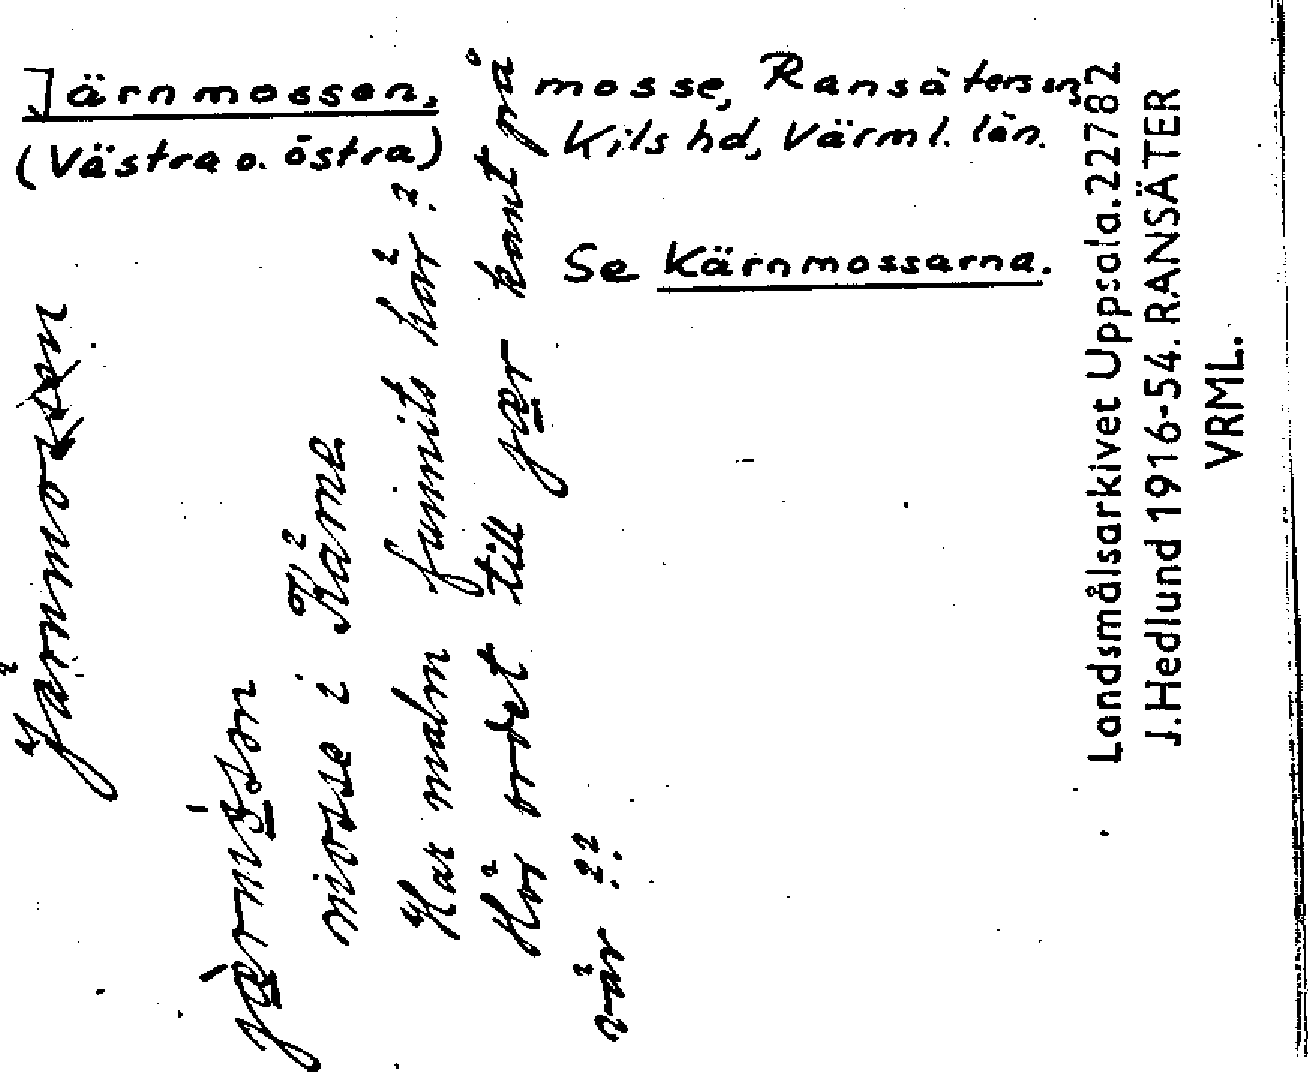 Järnmossen,
(Västra o. östra)
mosse, Ransäters sn,
Kils hd, Värml. län.
Se Kärnmossarna.
Järnmossen
jærnmɔsən
mosse i Kärne
Har malm funnits här?
Hör ordet till jær kant på
vår ??
Landsmålsarkivet Uppsala. 22782
J. Hedlund 1916-54. RANSÄTER
VRML.